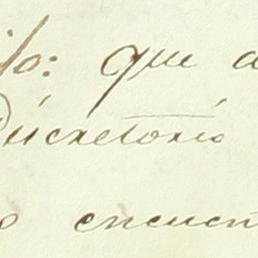 ilo: que a
Discretorio
o encuen